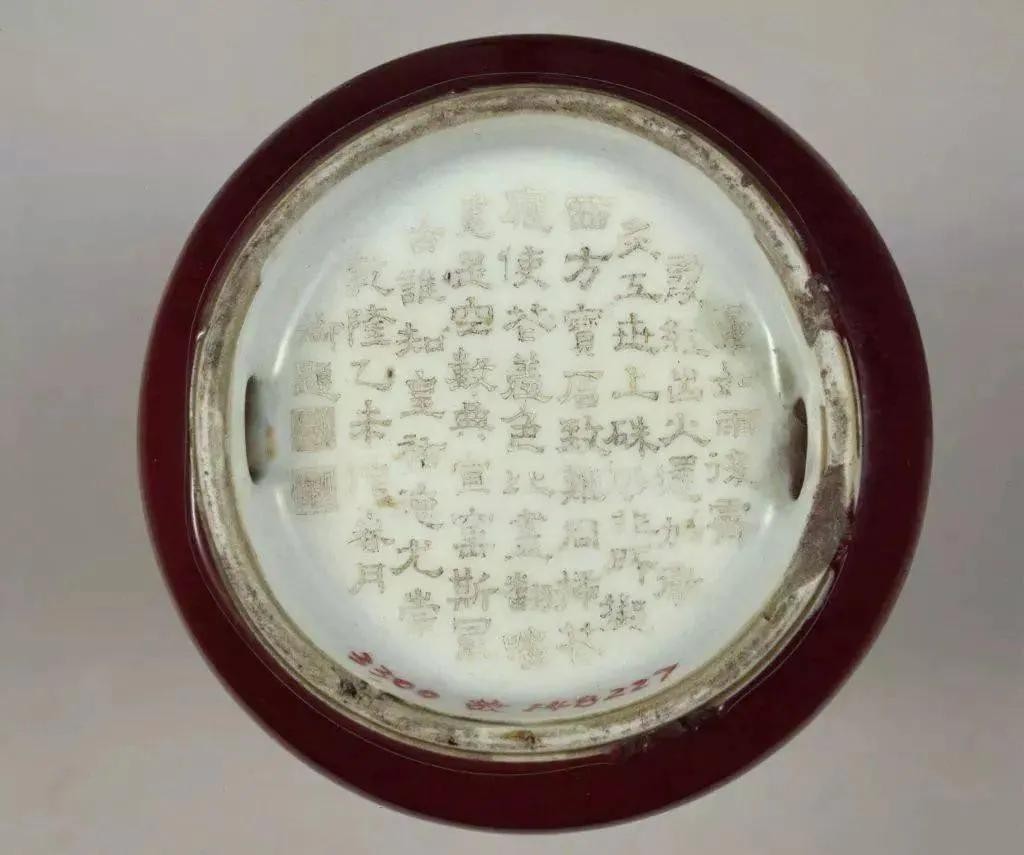 暈如雨後霽
霞紅出火還加微
炙工世上硃砂非所擬
西方寶石致難同插花
應使花羞色比畫翻嗤
畫是空數典宣窯斯最
古誰知皇祐德尤崇
乾隆乙未仲春月
御題
3300 号 148227